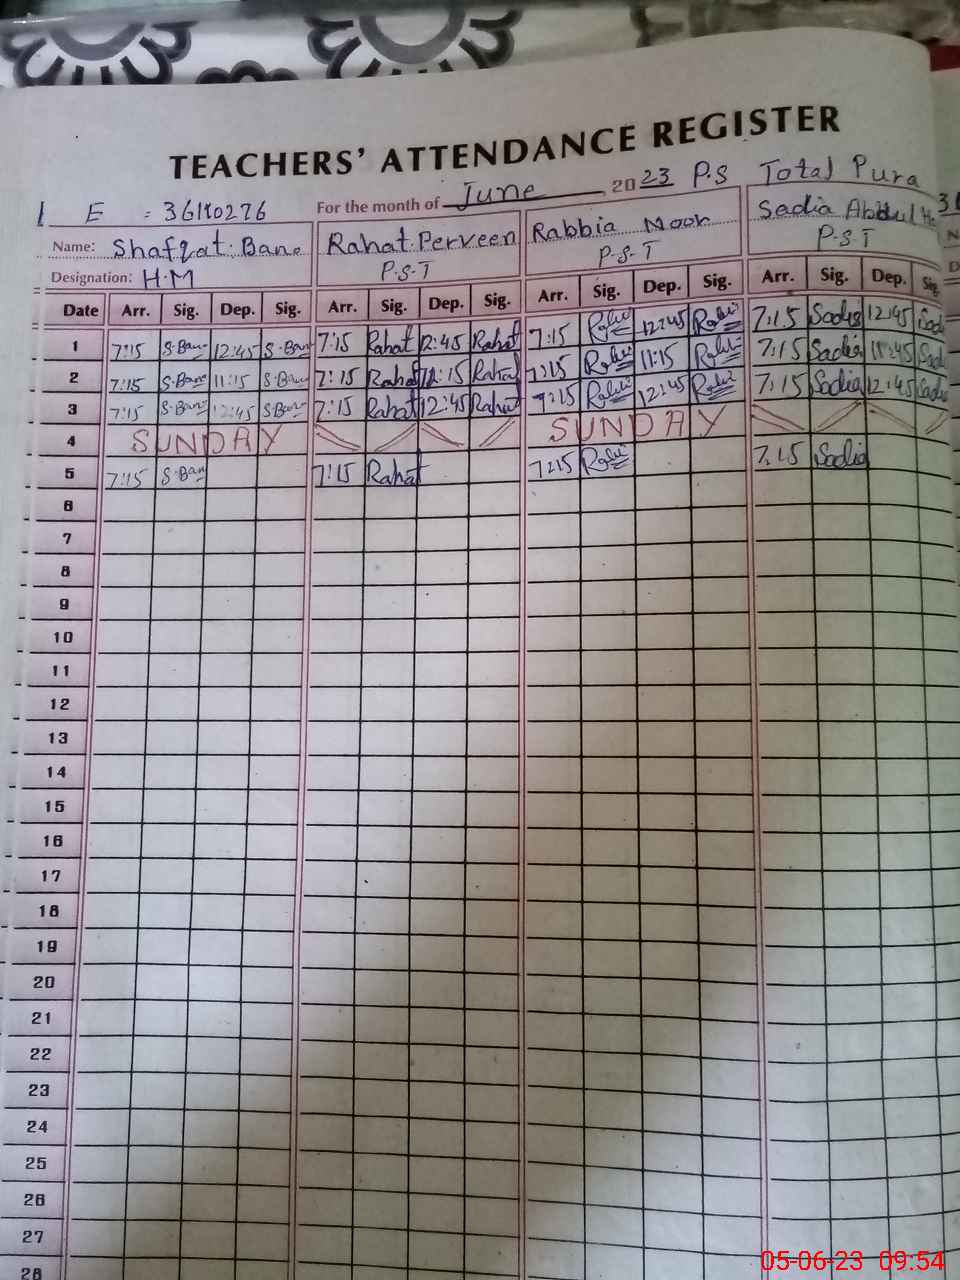 TEACHERS' ATTENDANCE REGISTER
For the month of June 2023 P.S Total Pura
E = 36110276
Name: Shafqat Bano Rahat Perveen Rabbia Noor Sadia Abdul
Designation: H.M P.S.T P.S.T P.S.T
Date Arr. Sig. Dep. Sig. Arr. Sig. Dep. Sig. Arr. Sig. Dep. Sig. Arr. Sig. Dep. Sig.
1 7:15 S.Bano 12:45 S.Bano 7:15 Rahat 12:45 Rahat 7:15 12:45 7:15 Sadia 12:45 Sadi
2 7:15 S.Bano 11:15 S.Bano 7:15 Rahat 11:15 Rahat 7:15 11:15 7:15 Sadia Sadi
3 7:15 S.Bano 12:45 S.Bano 7:15 Rahat 12:45 Rahat 7:15 12:45 7:15 Sadia 12:45 Sadia
4 SUNDAY SUNDAY
5 7:15 S.Ban 7:15 Rahat 7:15 7:15 Sadia
6
7
8
9
10
11
12
13
14
15
16
17
18
19
20
21
22
23
24
25
26
27
28
05-06-23 09:54